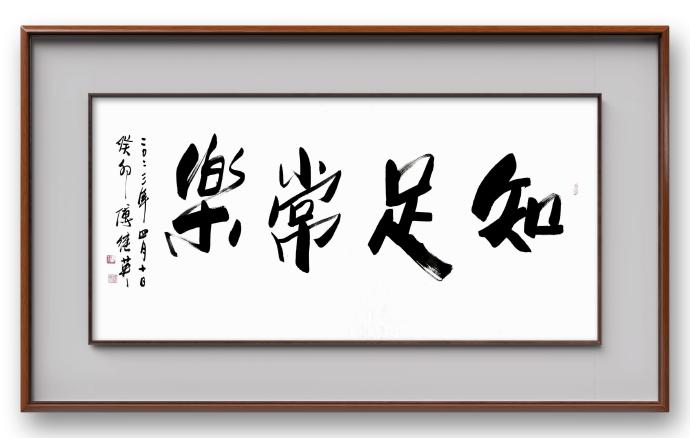 知足常樂
二〇二三年四月十日
癸卯 傅继英